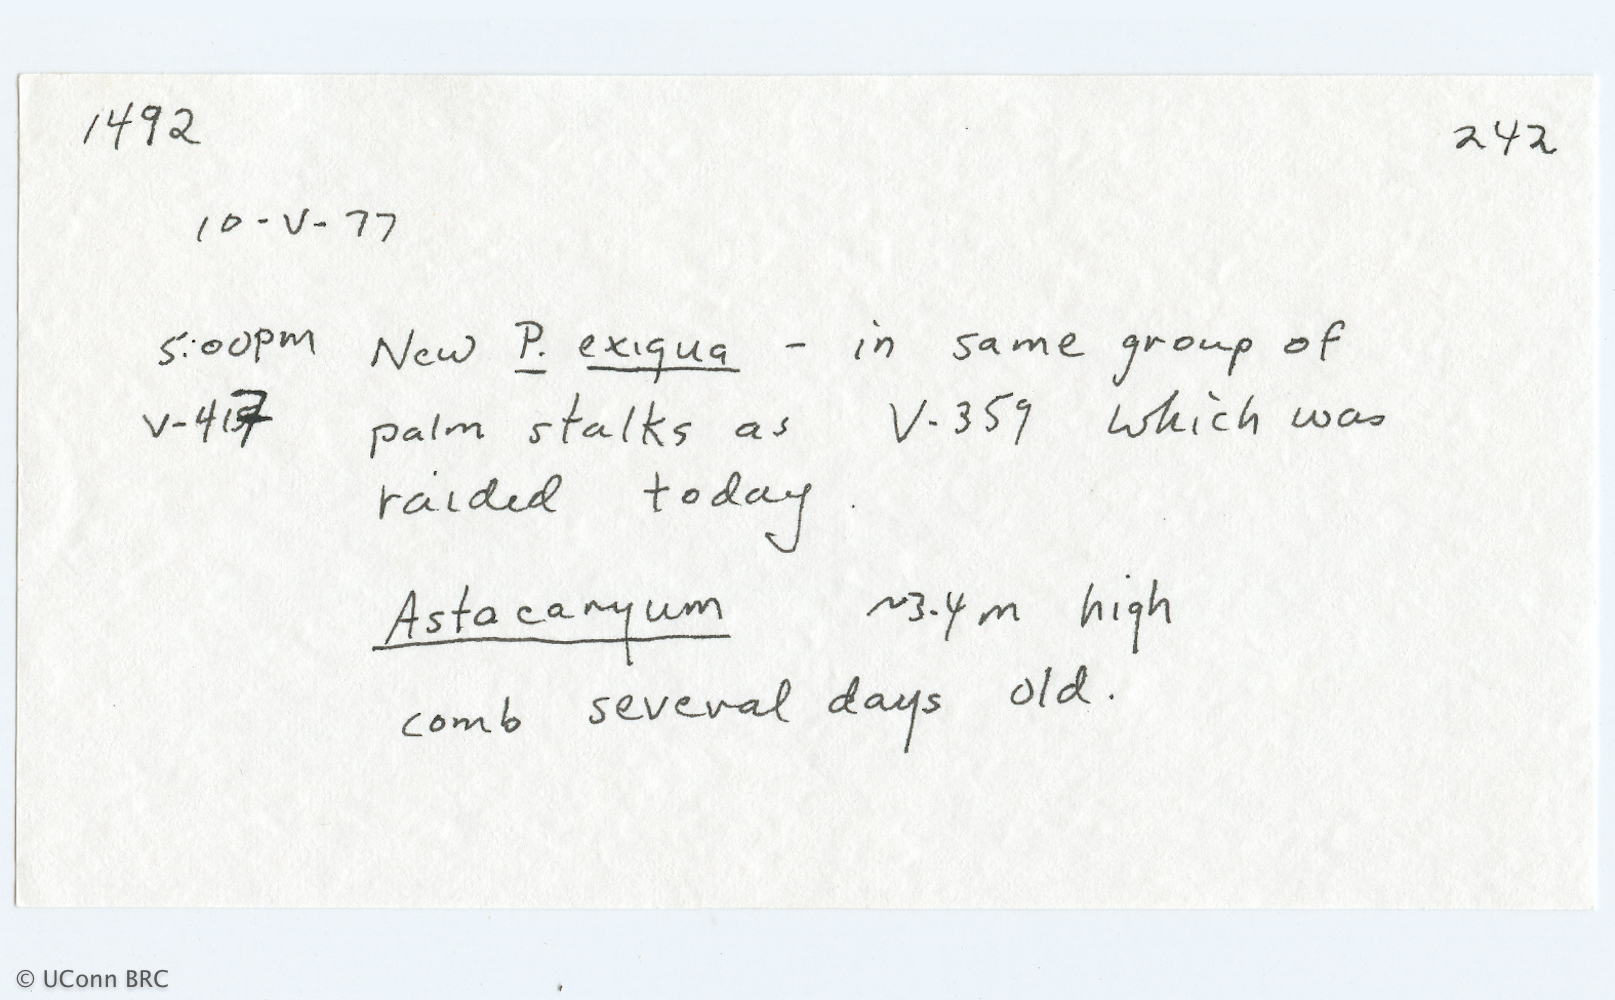 1492 242
10-V-77
5:00pm New P. exigua - in same group of
V-417 palm stalks as V-359 which was
raided today.
Astacaryum ~3.4m high
comb several days old.
© UConn BRC